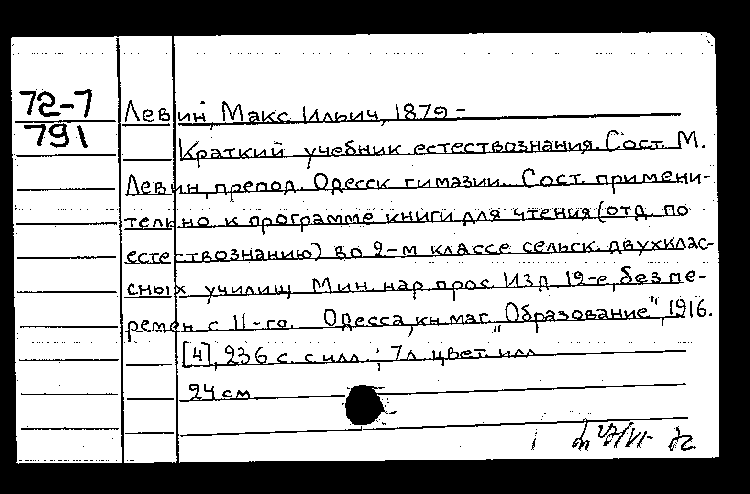 72-7
791
Левин, Макс Ильич, 1879 -
Краткий учебник естествознания. Сост. М.
Левин, препод. Одесск. гимазии. Сост. примени-
тельно к программе книги для чтения (отд. по
естествознанию) во 2-м классе сельск. двухклас-
сных училищ Мин. нар. прос. Изд. 12-е, без пе-
ремен с 11-го. Одесса, кн. маг. "Образование", 1916.
[4], 236 с. с илл.; 7 л. цвет. илл.
24 см.